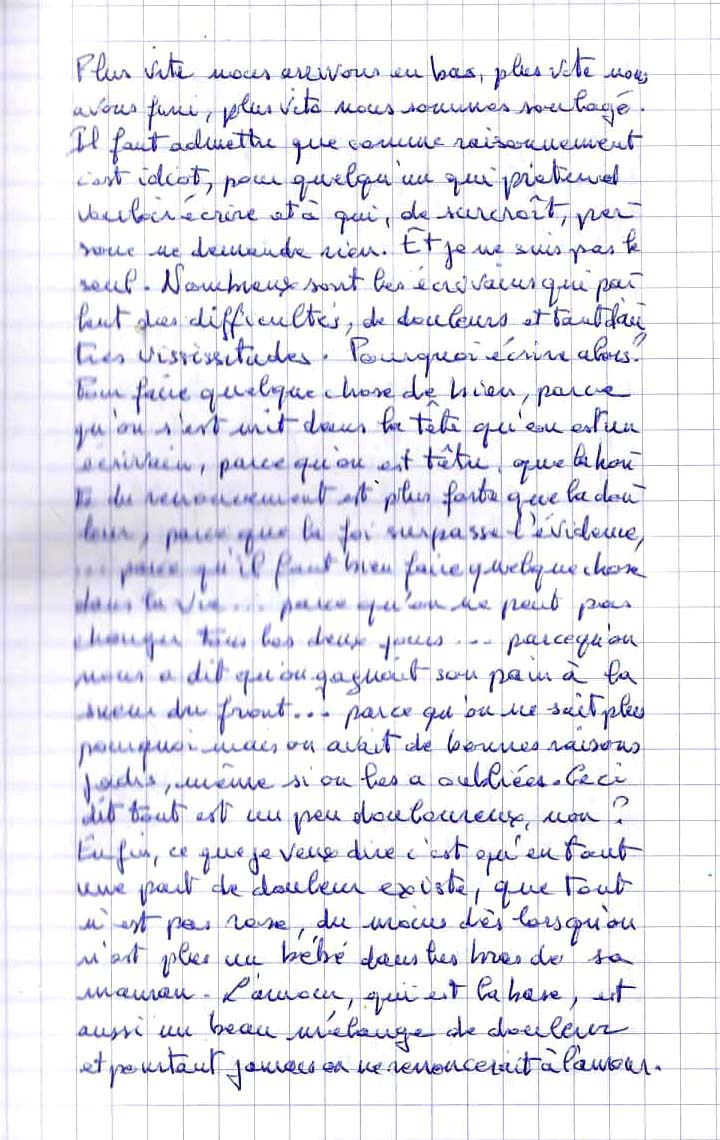 Plus vite nous arrivons en bas, plus vite nous
avons fini, plus vite nous sommes soulagé.
Il faut admettre que comme raisonnement
c'est idiot, pour quelqu'un qui prétend
vouloir écrire et à qui, de surcroît, per-
sonne ne demande rien. Et je ne suis pas le
seul. Nombreux sont les écrivains qui par-
lent des difficultés, de douleurs et tant d'au-
tres vississitudes. Pourquoi écrire alors?
Pour faire quelque chose de bien, parce
qu'on s'est mit dans la tête qu'on est un
écrivain, parce qu'on est têtu, que la hon-
te du renoncement est plus forte que la dou-
leur, parce que la foi surpasse l'évidence,
... parce qu'il faut bien faire quelque chose
dans la vie... parce qu'on ne peut pas
changer tous les deux jours... parcequ'on
nous a dit qu'on gagnait son pain à la
sueur du front... parce qu'on ne sait plus
pourquoi mais on avait de bonnes raisons
jadis, même si on les a oubliées. Ceci
dit tout est un peu douloureux, non?
Enfin, ce que je veux dire c'est qu'en tout
une part de douleur existe, que tout
n'est pas rose, du moins dès lorsqu'on
n'est plus un bébé dans les bras de sa
maman. L'amour, qui est la base, est
aussi un beau mélange de douleur
et pourtant jamais on ne renoncerait à l'amour.